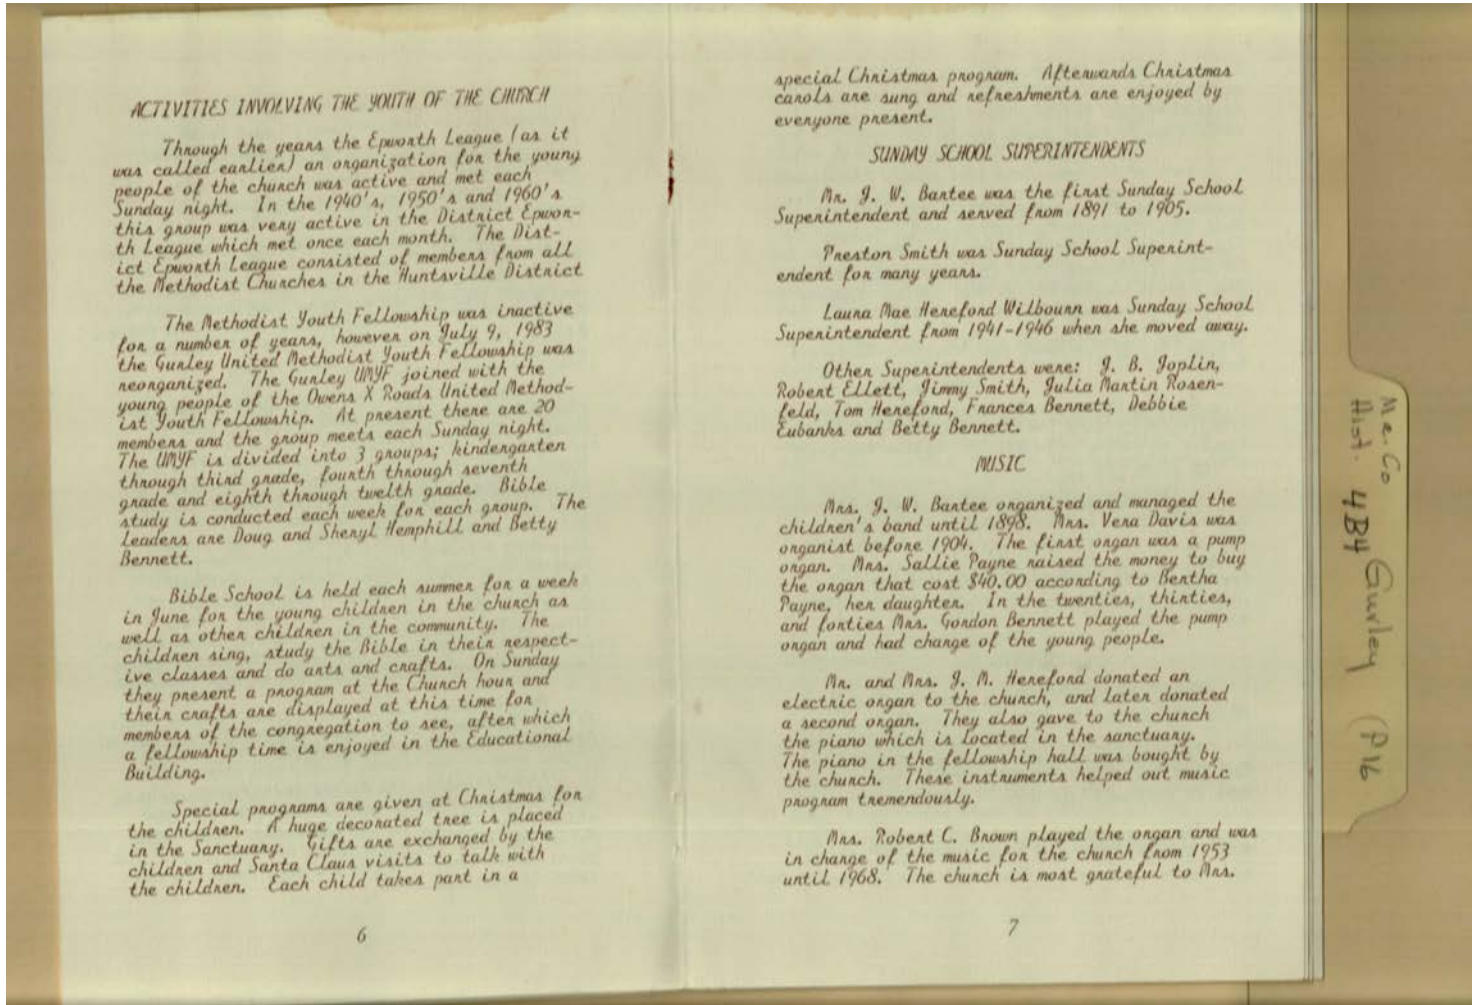 ACTIVITIES INVOLVING THE YOUTH OF THE CHURCH
Through the years the Epworth League (as it
was called earlier) an organization for the young
people of the church was active and met each
Sunday night. In the 1940's, 1950's and 1960's
this group was very active in the District Epwor-
th League which met once each month. The Dist-
ict Epworth League consisted of members from all
the Methodist Churches in the Huntsville District
The Methodist Youth Fellowship was inactive
for a number of years, however on July 9, 1983
the Gurley United Methodist Youth Fellowship was
reorganized. The Gurley UMYF joined with the
young people of the Owens X Roads United Method-
ist Youth Fellowship. At present there are 20
members and the group meets each Sunday night.
The UMYF is divided into 3 groups; kindergarten
through third grade, fourth through seventh
grade and eighth through twelth grade. Bible
study is conducted each week for each group. The
leaders are Doug and Sheryl Hemphill and Betty
Bennett.
Bible School is held each summer for a week
in June for the young children in the church as
well as other children in the community. The
children sing, study the Bible in their respect-
ive classes and do arts and crafts. On Sunday
they present a program at the Church hour and
their crafts are displayed at this time for
members of the congregation to see, after which
a fellowship time is enjoyed in the Educational
Building.
Special programs are given at Christmas for
the children. A huge decorated tree is placed
in the Sanctuary. Gifts are exchanged by the
children and Santa Claus visits to talk with
the children. Each child takes part in a
6
special Christmas program. Afterwards Christmas
carols are sung and refreshments are enjoyed by
everyone present.
SUNDAY SCHOOL SUPERINTENDENTS
Mr. J. W. Bartee was the first Sunday School
Superintendent and served from 1891 to 1905.
Preston Smith was Sunday School Superint-
endent for many years.
Laura Mae Hereford Wilbourn was Sunday School
Superintendent from 1941-1946 when she moved away.
Other Superintendents were: J. B. Joplin,
Robert Ellett, Jimmy Smith, Julia Martin Rosen-
feld, Tom Hereford, Frances Bennett, Debbie
Eubanks and Betty Bennett.
MUSIC
Mrs. J. W. Bartee organized and managed the
children's band until 1898. Mrs. Vera Davis was
organist before 1904. The first organ was a pump
organ. Mrs. Sallie Payne raised the money to buy
the organ that cost $40.00 according to Bertha
Payne, her daughter. In the twenties, thirties,
and forties Mrs. Gordon Bennett played the pump
organ and had charge of the young people.
Mr. and Mrs. J. M. Hereford donated an
electric organ to the church, and later donated
a second organ. They also gave to the church
the piano which is located in the sanctuary.
The piano in the fellowship hall was bought by
the church. These instruments helped out music
program tremendously.
Mrs. Robert C. Brown played the organ and was
in charge of the music for the church from 1953
until 1968. The church is most grateful to Mrs.
7
Me. Co
Hist. 4B4 Gurley (P16